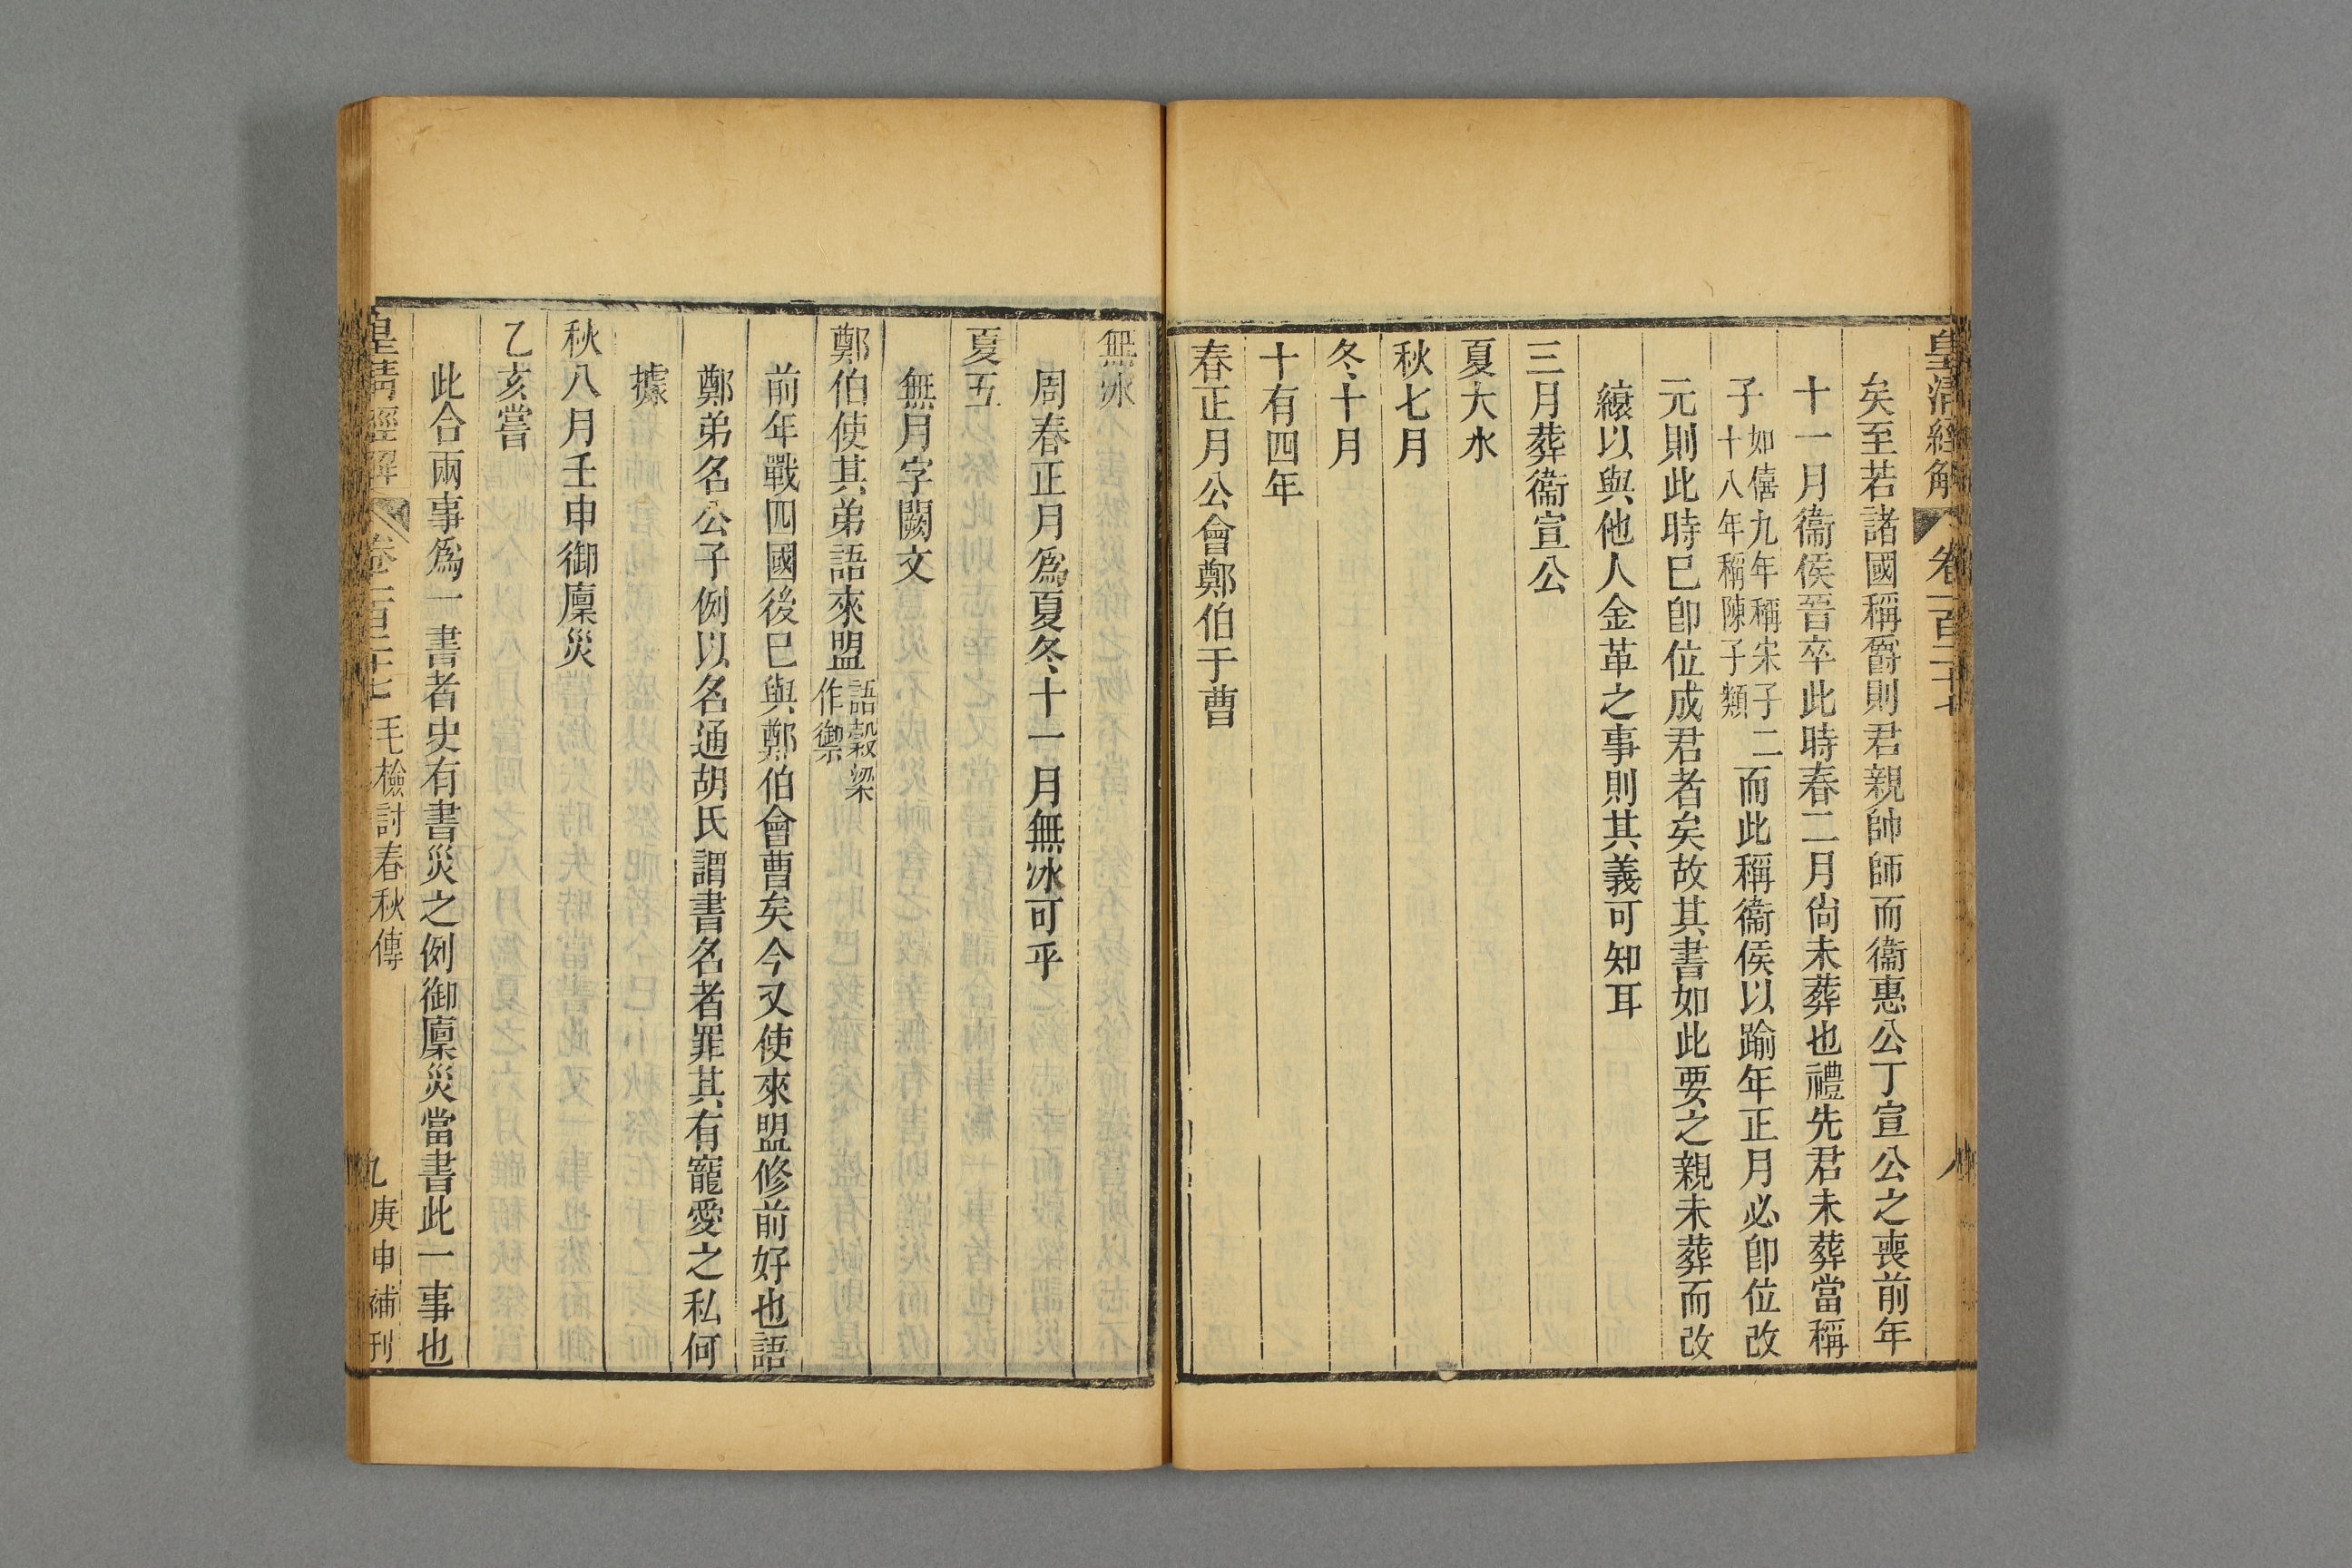 皇清經解 卷一百二十七 八
矣至若諸國稱爵則君親帥師而衞惠公丁宣公之喪前年
十一月衞侯晉卒此時春二月尙未葬也禮先君未葬當稱
子如僖九年稱宋子二十八年稱陳子類二而此稱衞侯以踰年正月必卽位改
元則此時已卽位成君者矣故其書如此要之親未葬而改
縗以與他人金革之事則其義可知耳
三月葬衞宣公
夏大水
秋七月
冬十月
十有四年
春正月公會鄭伯于曹
無冰
周春正月爲夏冬十一月無冰可乎
夏五
無月字闕文
鄭伯使其弟語來盟語穀梁作禦
前年戰四國後已與鄭伯會曹矣今又使來盟修前好也語
鄭弟名公子例以名通胡氏謂書名者罪其有寵愛之私何
據
秋八月壬申御廩災
乙亥嘗
此合兩事爲一書者史有書災之例御廩災當書此一事也
皇清經解 卷一百二十七 毛檢討春秋傳 九 庚申補刊